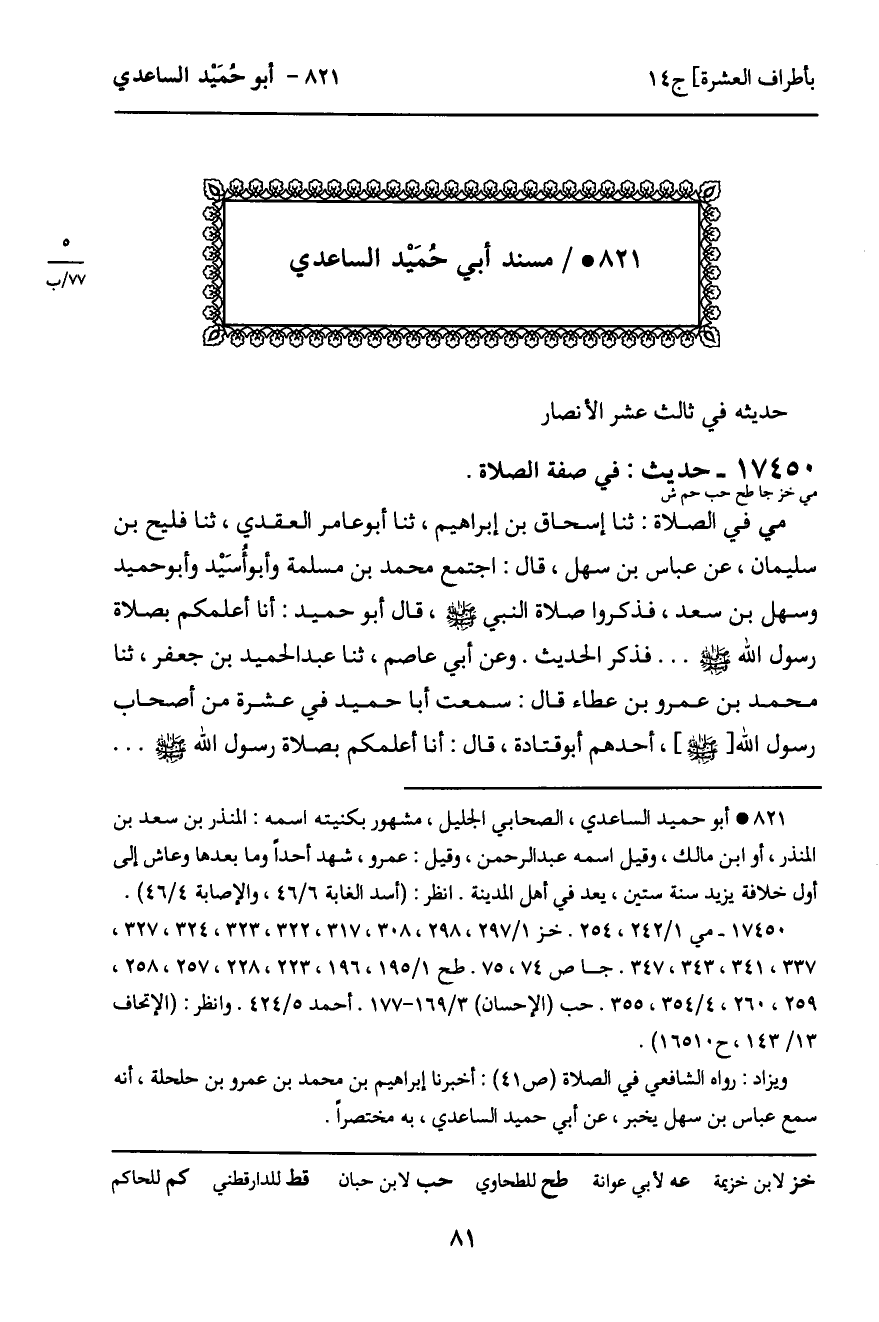 بأطراف العشرة] ج١٤
٨٢١ - أبو حُمَيْد الساعدي
٥
٧٧/ب
٨٢١● / مسند أبي حُمَيْد الساعدي
حديثه في ثالث عشر الأنصار
١٧٤٥٠ ـ حديث : في صفة الصلاة .
مي خز جا طح حب حم ش
مي في الصلاة : ثنا إسحاق بن إبراهيم ، ثنا أبوعامر العقدي ، ثنا فليح بن
سليمان ، عن عباس بن سهل ، قال : اجتمع محمد بن مسلمة وأبوأُسَيْد وأبوحميد
وسهل بن سعد ، فذكروا صلاة النبي ﷺ ، قال أبو حميد : أنا أعلمكم بصلاة
رسول الله ﷺ ... فذكر الحديث . وعن أبي عاصم ، ثنا عبدالحميد بن جعفر ، ثنا
محمد بن عمرو بن عطاء قال : سمعت أبا حميد في عشرة من أصحاب
رسول الله[ ﷺ ] ، أحدهم أبوقتادة ، قال : أنا أعلمكم بصلاة رسول الله ﷺ ...
٨٢١● أبو حميد الساعدي ، الصحابي الجليل ، مشهور بكنيته اسمه : المنذر بن سعد بن
المنذر ، أو ابن مالك ، وقيل اسمه عبدالرحمن ، وقيل : عمرو ، شهد أحداً وما بعدها وعاش إلى
أول خلافة يزيد سنة ستين ، يعد في أهل المدينة . انظر : (أسد الغابة ٤٦/٦ ، والإصابة ٤٦/٤) .
١٧٤٥٠ ـ مي ٢٤٢/١ ، ٢٥٤ . خز ٢٩٧/١ ، ٢٩٨ ، ٣٠٨ ، ٣١٧ ، ٣٢٢ ، ٣٢٣ ، ٣٢٤ ، ٣٢٧ ،
٣٣٧ ، ٣٤١ ، ٣٤٣ ، ٣٤٧ . جا ص ٧٤ ، ٧٥ . طح ١٩٥/١ ، ١٩٦ ، ٢٢٣ ، ٢٢٨ ، ٢٥٧ ، ٢٥٨ ،
٢٥٩ ، ٢٦٠ ، ٣٥٤/٤ ، ٣٥٥ . حب (الإحسان) ١٦٩/٣-١٧٧ . أحمد ٤٢٤/٥ . وانظر : (الإتحاف
١٣/ ١٤٣ ، ح١٦٥١٠) .
ويزاد : رواه الشافعي في الصلاة (ص٤١) : أخبرنا إبراهيم بن محمد بن عمرو بن حلحلة ، أنه
سمع عباس بن سهل يخبر ، عن أبي حميد الساعدي ، به مختصراً .
خز لابن خزيمة عه لأبي عوانة طح للطحاوي حب لابن حبان قط للدارقطني كم للحاكم
٨١